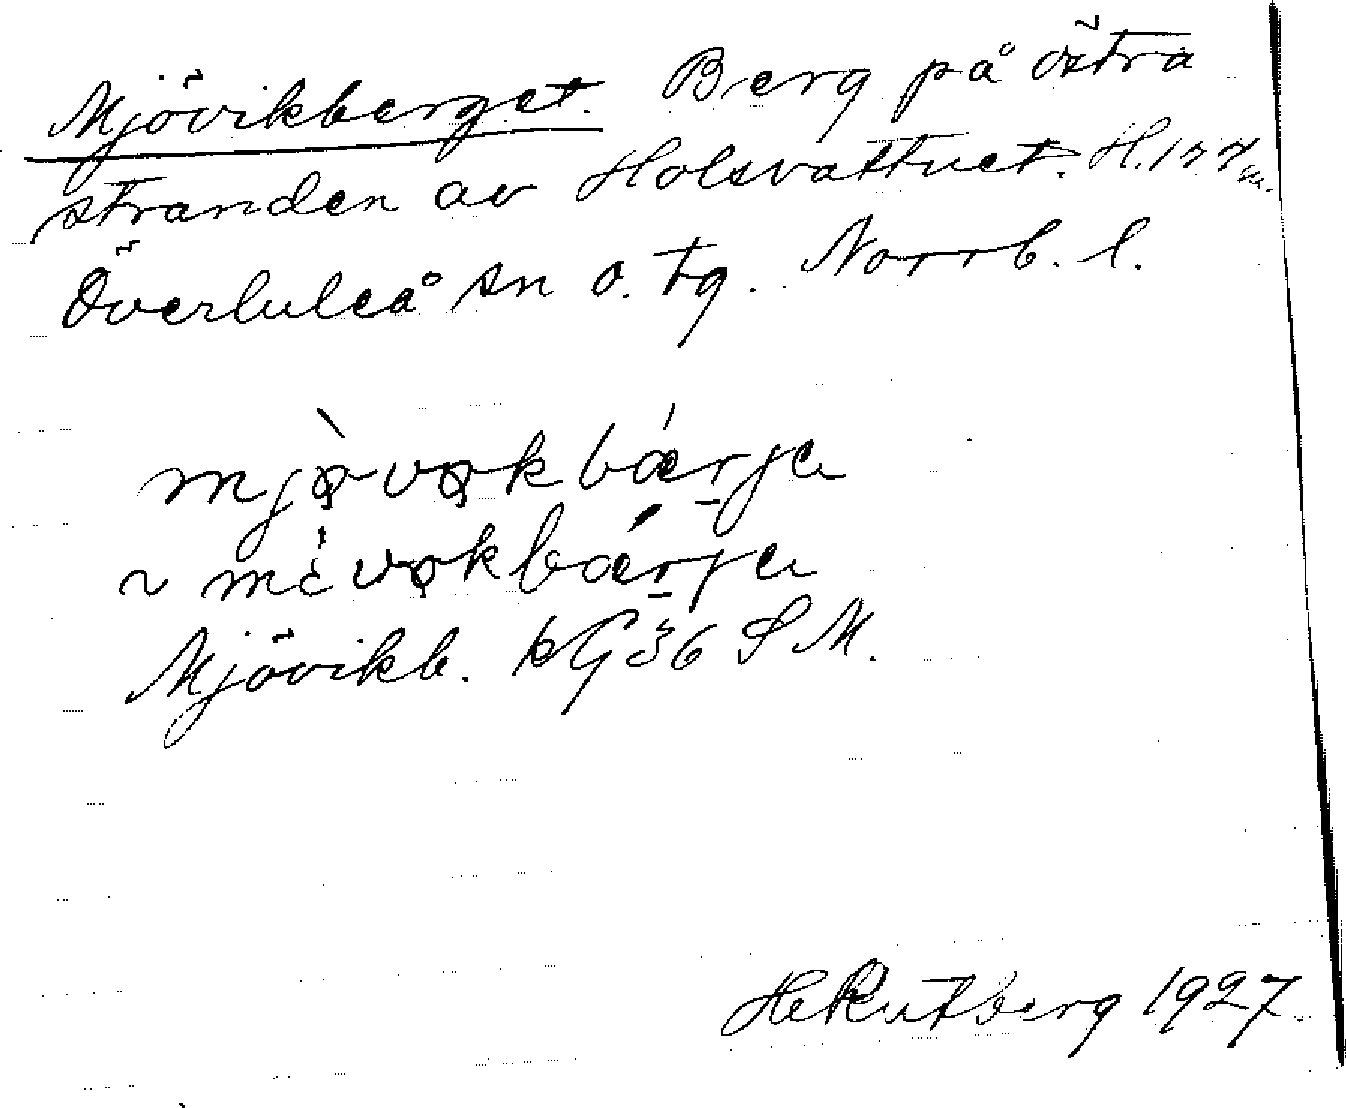 Mjövikberget. Berg på östra
stranden av Holsvattnet. H. 177 m.
Överluleå sn o. tg. Norrb. l.
mjø̀vøkbǽrjɐ
~ mɛ̀vøkbǽrjɐ
Mjövikb. kG 36 S M.
H Rutberg 1927